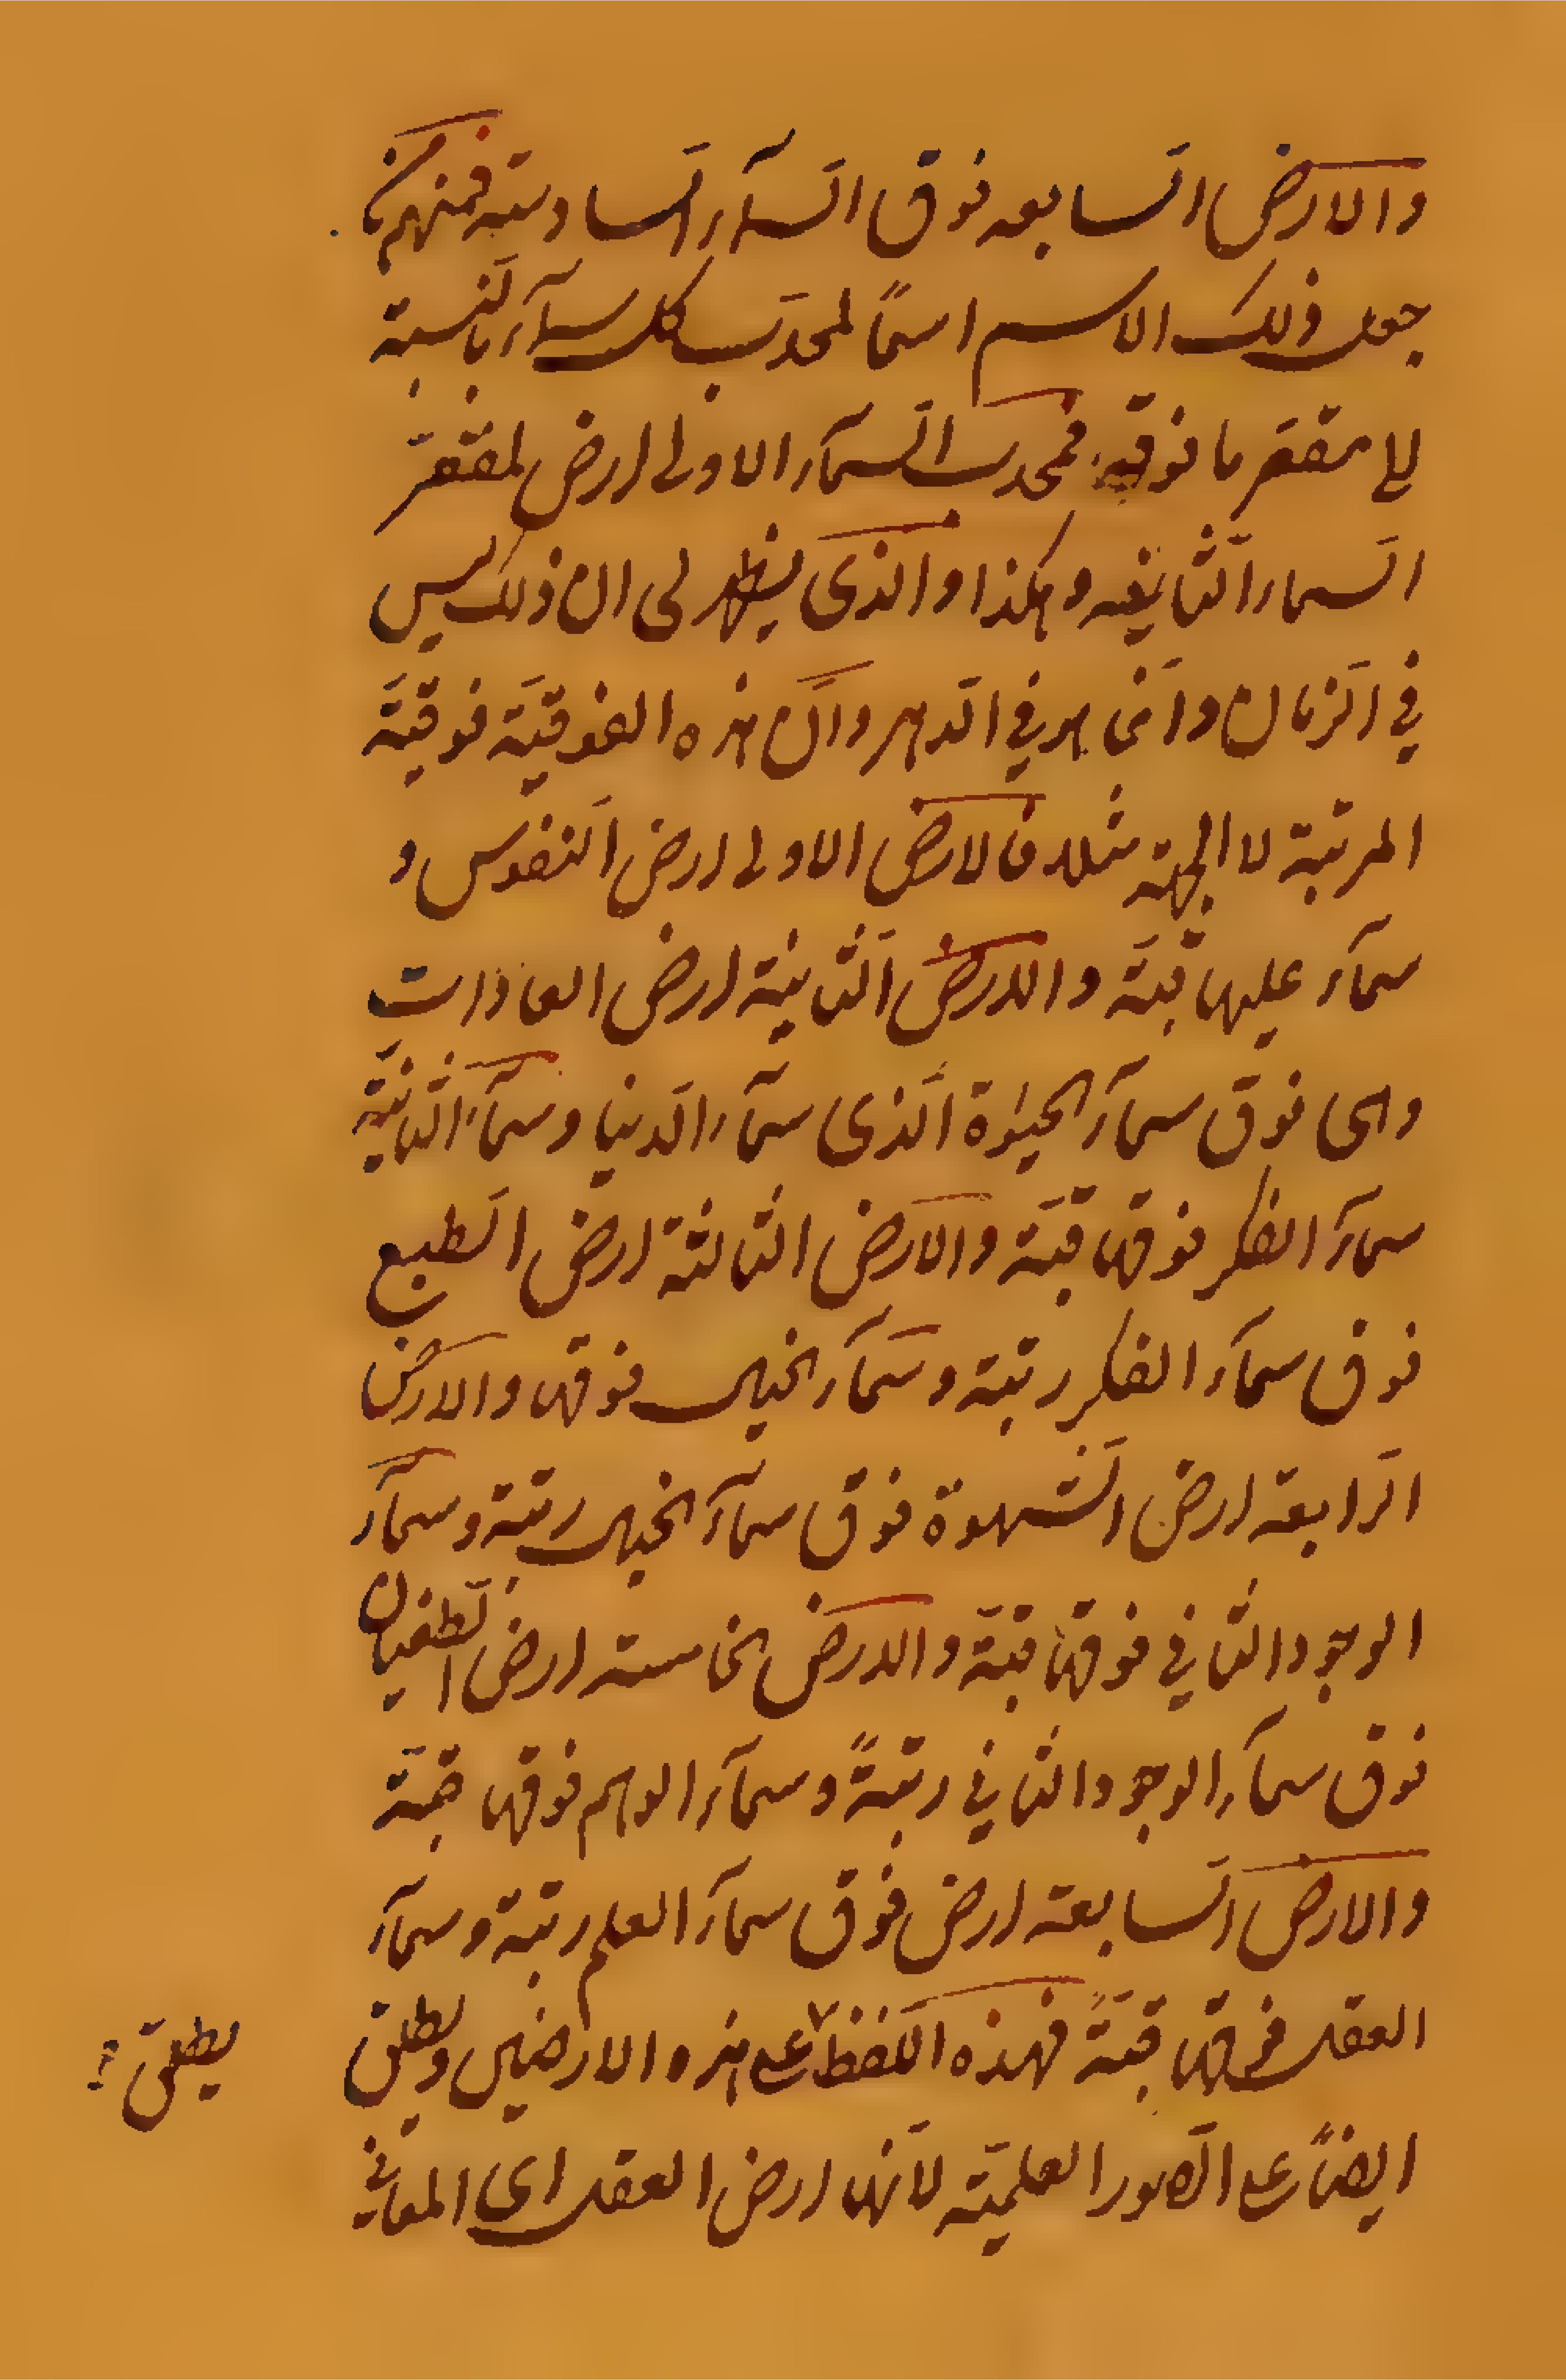 والارض السابعه فوق السمآء السادسته فمنهم من
جعل ذلك الاسم اسمًا لمحدّب كل سمآء بالنسبة
الى مقعّر ما فوقه فمحدب السمآء الاولى ارض لمقعّر
السماء الثانيه وهكذا والذى يظهر لى ان ذلك ليس
في الزمان وانّما هو في الدهر وانّ هذه الفوقيّة فوقيّة
المرتبة لا الجهة مثلا فالارض الاولى ارض النفوس و
سمآء عليها قبّة والارض الثانية ارض العادات
وهى فوق سمآء الحيٰوة الّذى سمآء الدنيا وسمآء الثانية
سمآء الفكر فوقها قبّة والارض الثالثة ارض الطبع
فوق سمآء الفكر رتبة وسمآء الخيال فوقها والارض
الرابعة ارض الشهوة فوق سمآء الخيال رتبة وسمآء
الوجود الثاني فوقها قبّة والارض الخامسة ارض الطغيان
فوق سمآء الوجود الثاني رتبةً وسمآء الوهم فوقها قبّة
والارض السابعة ارض فوق سمآء العلم رتبة وسمآء
العقل فوقها قبّةً فهذه اللفظ على هذه الارضين ويطلق
يطلق
ايضًا على الصور العلميّة لانّها ارض العقل اى المعاني